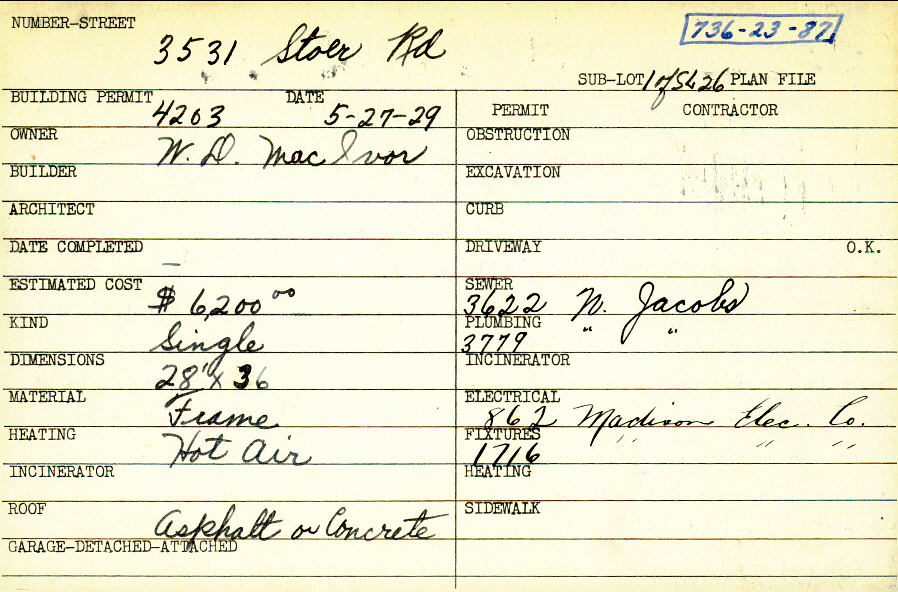 NUMBER-STREET 3531 Stoer Rd
736-23-87
SUB-LOT 1 of SL 26 PLAN FILE
BUILDING PERMIT 4203 DATE 5-27-29
PERMIT CONTRACTOR
OWNER W. D. Mac Ivor
OBSTRUCTION
BUILDER
EXCAVATION
ARCHITECT
CURB
DATE COMPLETED –
DRIVEWAY O.K.
ESTIMATED COST $ 6,200 00
SEWER 3622 N. Jacobs
KIND Single
PLUMBING 3779 " "
DIMENSIONS 28' x 36
INCINERATOR
MATERIAL Frame
ELECTRICAL 862 Madison Elec. Co.
HEATING Hot Air
FIXTURES 1716 " " "
INCINERATOR
HEATING
ROOF Asphalt or Concrete
SIDEWALK
GARAGE-DETACHED-ATTACHED